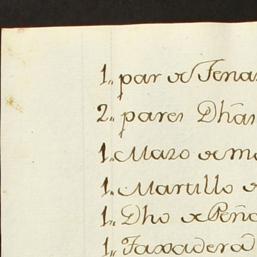 1,, par de Tena
2,, pares Dhas
1,, Mazo de ma
1,, Martillo d
1,, Dho de Peña
1,, Taxadera